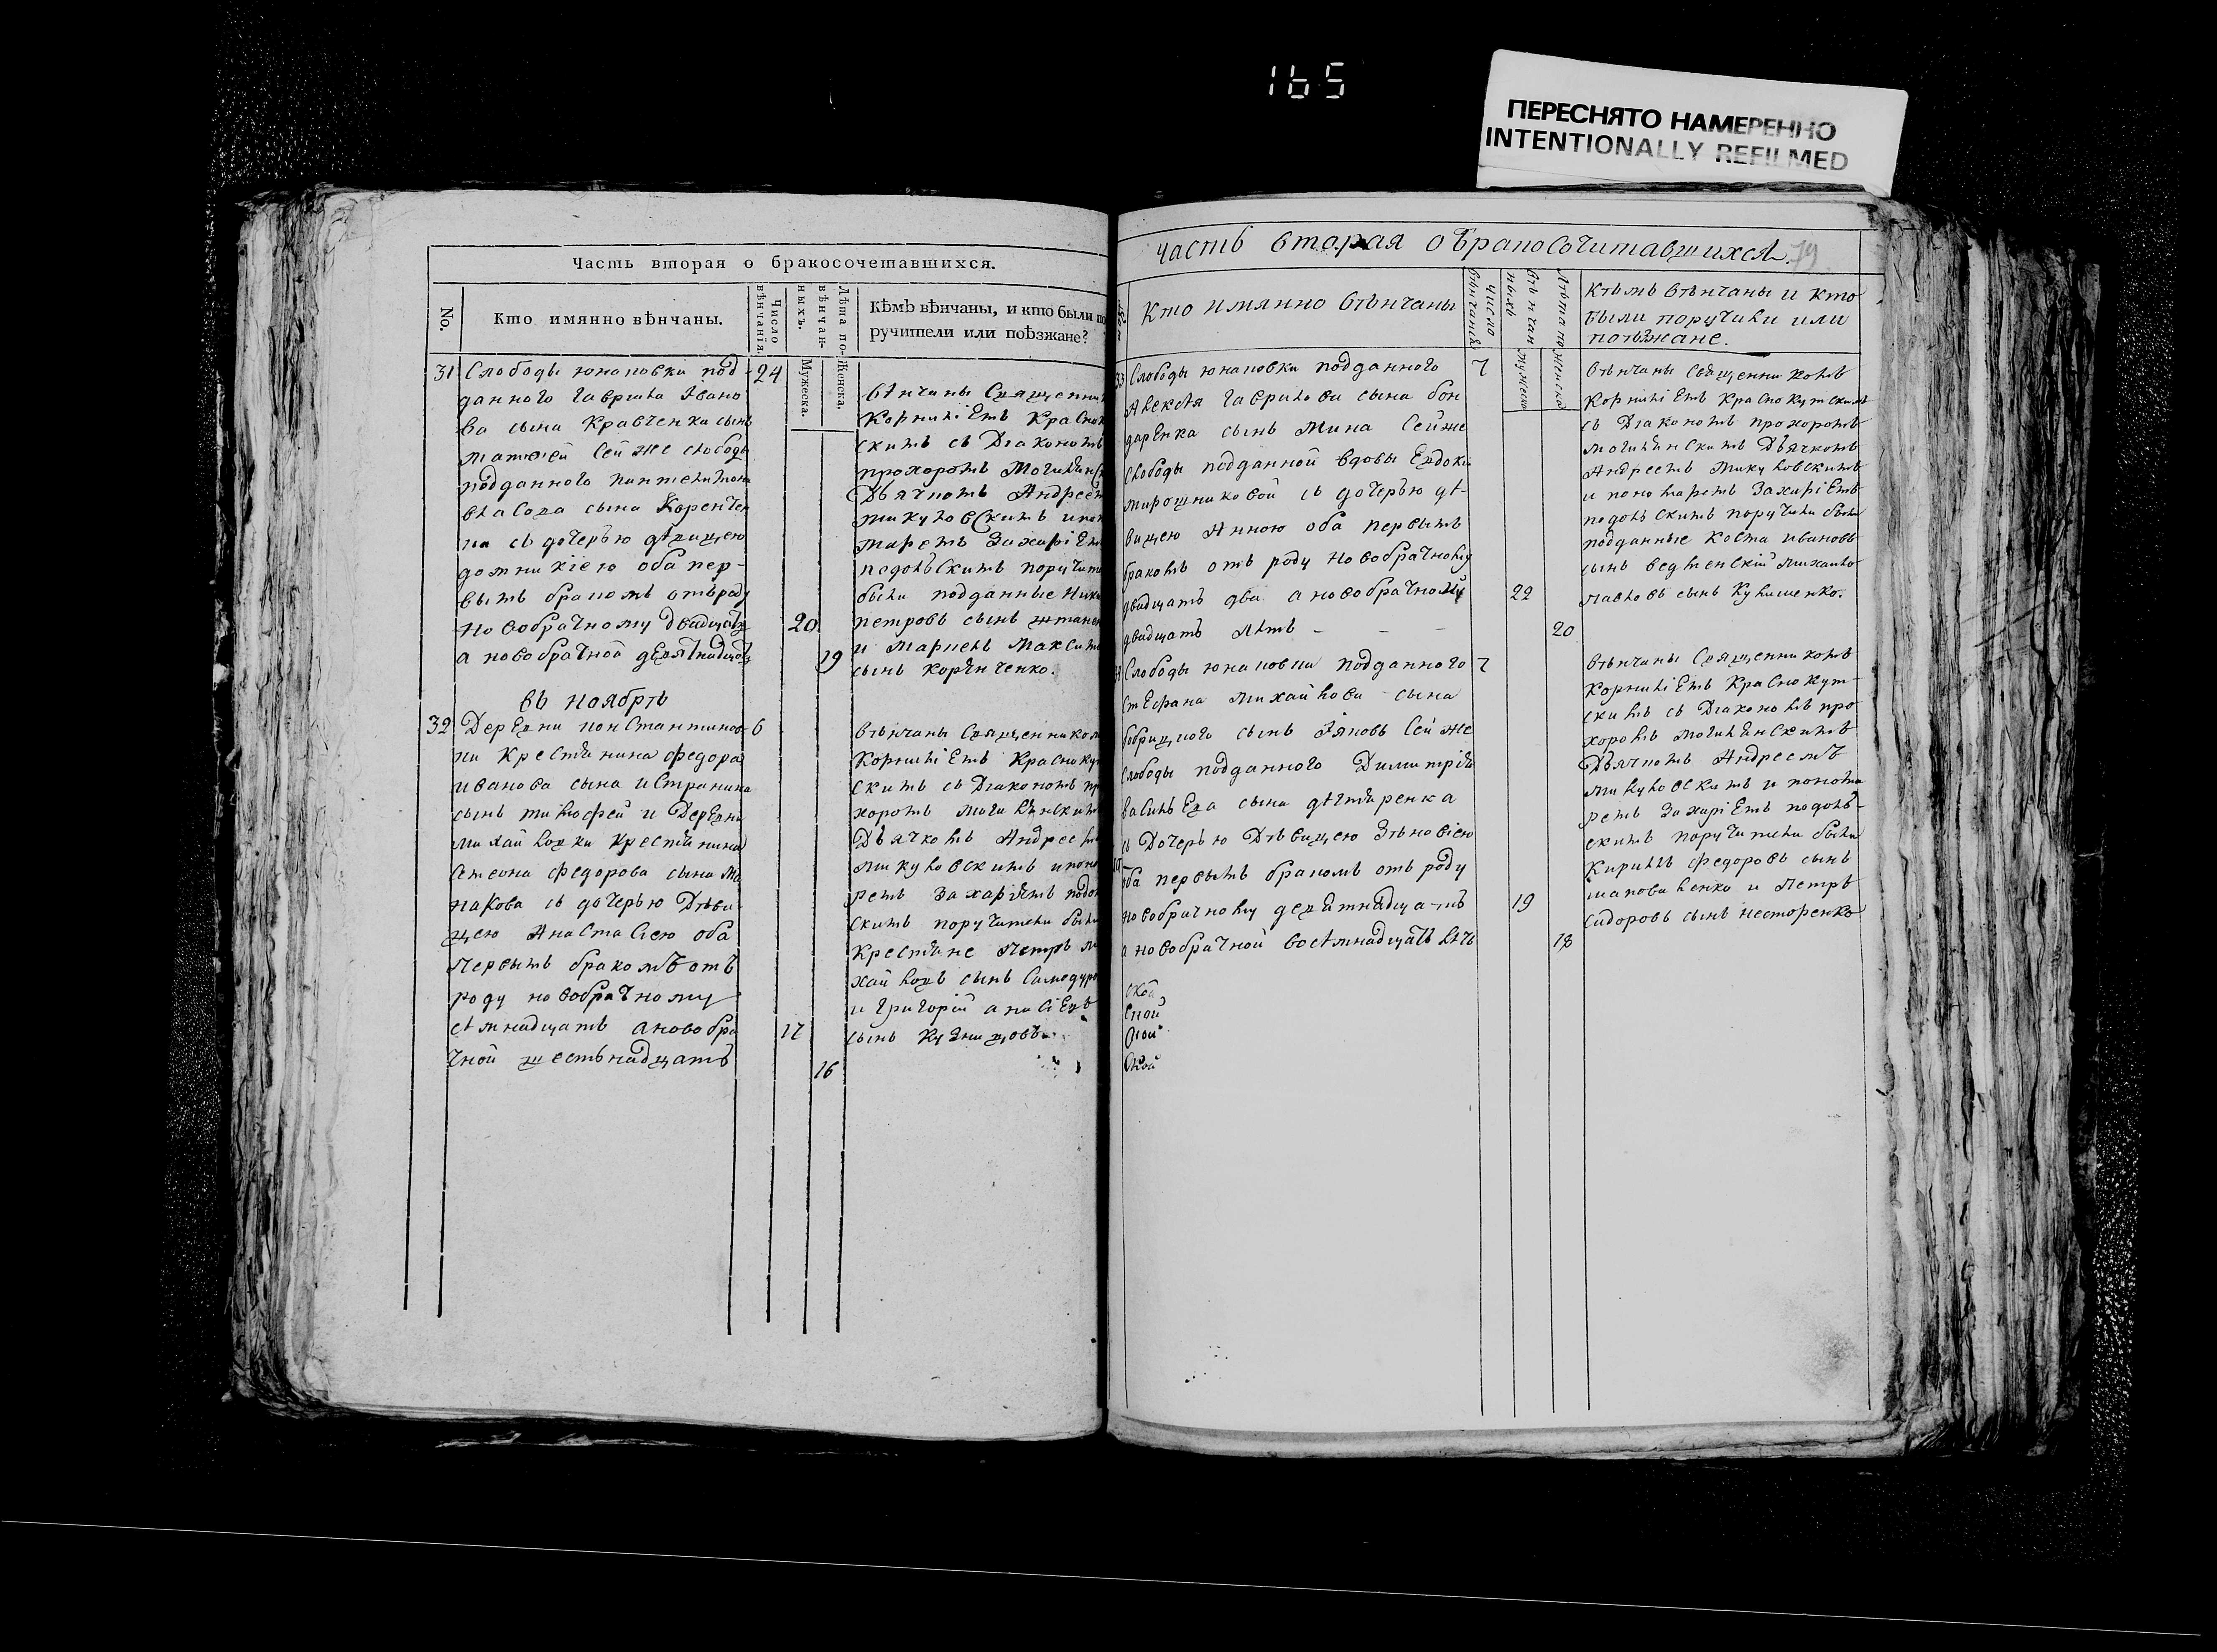 165
ПЕРЕСНЯТО НАМЕРЕННО
INTENTIONALLY REFILMED
Часть вторая о бракосочетавшихся.
No.
Кто имянно вѣнчаны.
Число вѣнчанія.
Лѣта по-
вѣнчан-
ныхъ.
Мужеска.
Женска.
Кѣмъ вѣнчаны, и кто были по
ручители или поѣзжане?
31 Слободы юнаковки под- 24
данного Гавриила Ивано
ва сына Кравченка сынъ
матѳѣй сей же слободы
подданного пантелимона
власова сына
на съ дочерью дѣвицею
домникіею оба пер-
вымъ бракомъ отъ роду
новобрачному двадцать 20
а новобрачной девятнадцать 19
вѣнчаны Священни
Корниліемъ Красно
скимъ съ Діакономъ
прохоромъ Могилян
Дьячкомъ Андреем
микуловскимъ и поно
маремъ Захаріем
подольскимъ поручит
были подданные
петровъ сынъ
и Маркелъ Максим
сынъ
въ ноябрѣ
32 Деревни константинов 6
ки Крестянина федора
иванова сына
сынъ тимофей и Деревни
михайловки крестянина
Семеона федорова сына ма
накова съ дочерью Дѣви
цею Анастасіею оба
первымъ бракомъ отъ
роду новобрачному
семнадцать а новобра 17
чной шестьнадцать 16
вѣнчаны Священником
Корниліемъ Краснокут
скимъ съ Діакономъ пр
хоромъ могилянским
Дьячкомъ Андреем
микуловскимъ и поно
ремъ Захаріемъ подол
скимъ поручители были
Крестяне Петръ ми
хайловъ сынъ
и Григорій
сынъ Кузнецовъ
часть вторая о бракосочитавшихся. 79
кто имянно вѣнчаны
число вѣнчанія
Лѣта по
вѣнчан
ныхъ
мужеска
женска
Кѣмъ вѣнчаны и кто
были поручики или
поѣзжане.
33 Слободы юнаковки подданного 7
Алексѣя Гаврилова сына бон
даренка сынъ Мина сей же
слободы подданной вдовы Евдокіи
мирошниковой съ дочерью дѣ-
вицею Анною оба первымъ
бракомъ отъ роду новобрачному
двадцать два а новобрачной 22
двадцать лѣтъ - - - 20
вѣнчаны Священникомъ
Корниліемъ Краснокутскимъ
съ Діакономъ прохоромъ
могилянскимъ Дьячкомъ
Андреемъ микуловскимъ
и пономаремъ Захаріемъ
подольскимъ поручики были
подданные Косма ивановъ
сынъ михаило
павловъ сынъ
Слободы юнаковки подданного 7
Стефана михайлова сына
бобрицкого сынъ Іяковъ сей же
слободы подданного Димитрія
васильева сына дегтяренка
съ Дочерью Дѣвицею Зѣновіею
оба первымъ бракомъ отъ роду
новобрачному девятнадцать 19
а новобрачной восемнадцать лѣтъ 18
вѣнчаны Священникомъ
Корниліемъ Краснокут-
скимъ съ Діакономъ про
хоромъ могилянскимъ
Дьячкомъ Андреемъ
микуловскимъ и понома
ремъ Захаріемъ подоль-
скимъ поручители были
Кирилъ федоровъ сынъ
шаповаленко и Петръ
сидоровъ сынъ несторенко